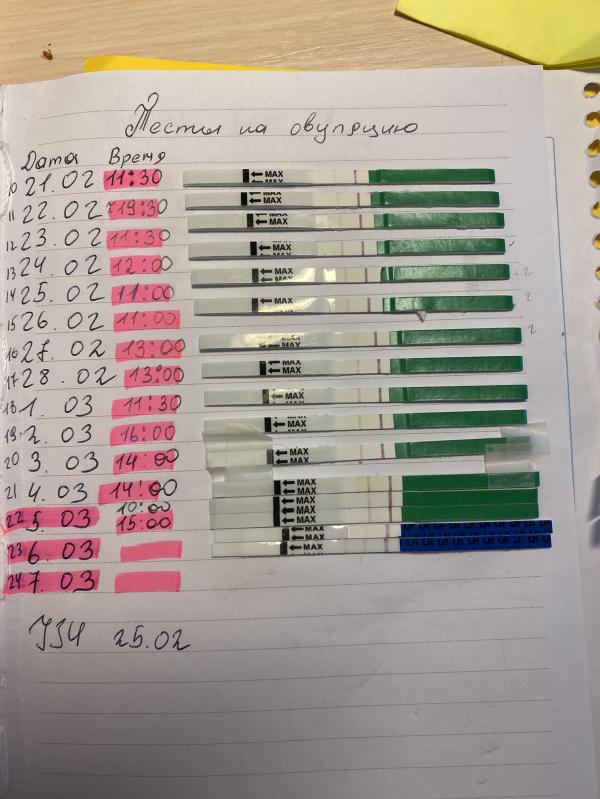 Тесты на овуляцию
Дата Время
10 21.02 11:30 ←MAX
11 22.02 19:30 ←MAX
12 23.02 11:30 ←MAX
13 24.02 12:00 ←MAX
14 25.02 11:00 ←MAX
15 26.02 11:00 ←MAX
16 27.02 13:00 MAX
17 28.02 13:00 ←MAX
18 1.03 11:30 ←MAX
19 2.03 16:00 ←MAX
20 3.03 14:00 ←MAX
21 4.03 14:00 ←MAX
22 5.03 10:00 ←MAX
15:00 ←MAX
23 6.03 ←MAX
24 7.03 ←MAX
УЗИ 25.02